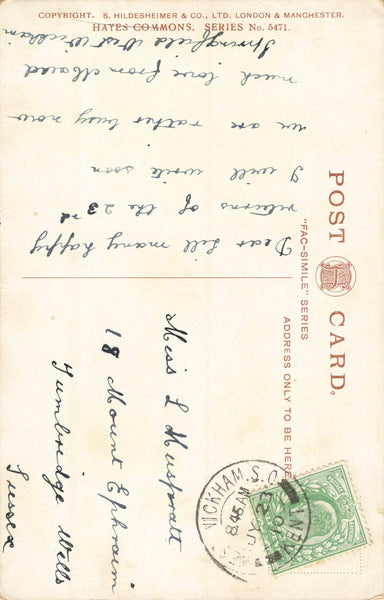 COPYRIGHT. S. HILDESHEIMER & CO., LTD. LONDON & MANCHESTER.
HAYES COMMONS. SERIES No. 5471.
POST CARD.
"FAC-SIMILE" SERIES
ADDRESS ONLY TO BE HERE
Dear Lill many happy
returns of the 23rd
I will write soon
we are rather busy now
much love from Maud
Springfield West Wickham
Miss L Muspratt
18 Mount Ephraim
Tunbridge Wells
Sussex
WICKHAM.S.O.
KENT
8.45 AM
23